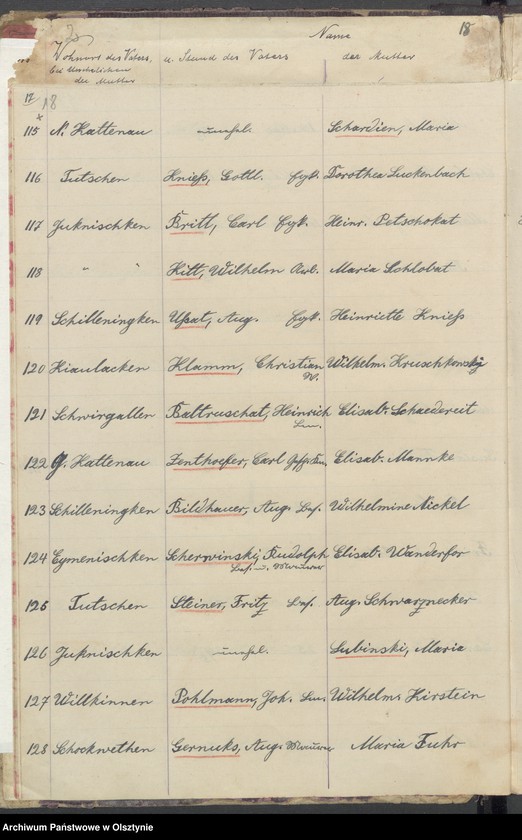 18
Name
Wohnort des Vaters,
bei Unehelichen
der Mutter
u. Stand des Vaters
der Mutter
18
115 N. Kattenau unehel. Schardien, Maria
116 Tutschen Knieß, Gottl. Dorothea Luckenbach
117 Juknischken Britt, Carl Heinr. Petschokat
118 " " Kitt, Wilhelm Maria Schlobat
119 Schilleningken Ußat, Aug. Henriette Knieß
120 Kiaulacken Klamm, Christian W. Wilhelm. Kruschkowsky
121 Schwirgallen Baltruschat, Heinrich Elisab. Schaedereit
122 G. Kattenau Zenthoefer, Carl Elisab. Mannke
123 Schilleningken Bildhauer, Aug. Wilhelmine Nickel
124 Eymenischken Scherwinski, Rudolph Elisab. Wanderfor
u. Maurer
125 Tutschen Steiner, Fritz Aug. Schwarznecker
126 Juknischken unehel. Lubinski, Maria
127 Willkinnen Pohlmann, Joh. Wilhelm. Kirstein
128 Schockwethen Gernuks, Aug. Maurer Maria Fuhr
Archiwum Państwowe w Olsztynie